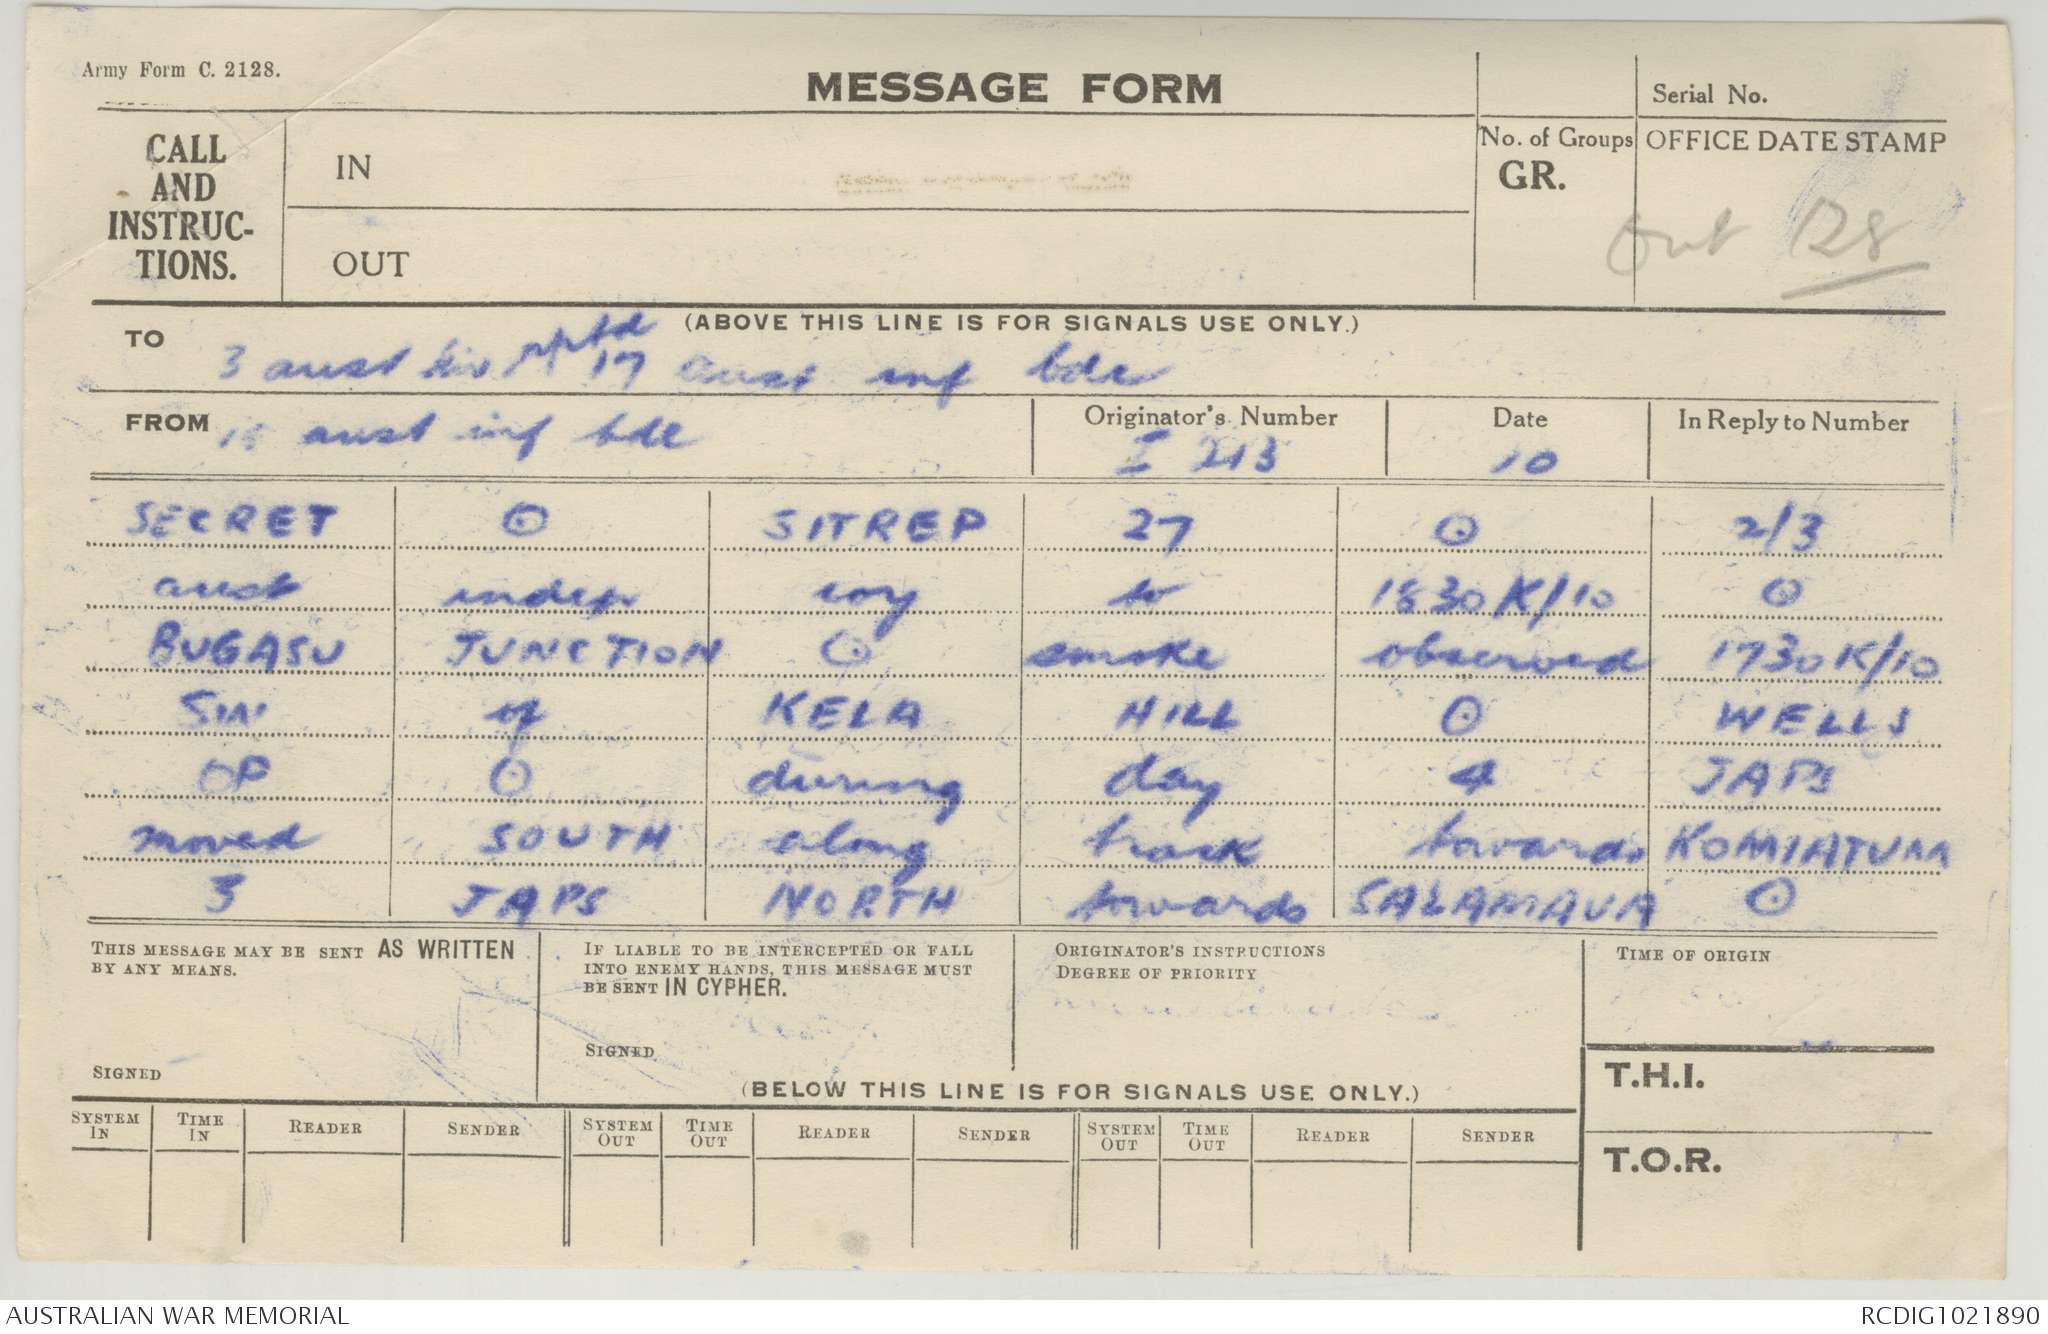 Army Form C. 2128.
MESSAGE FORM
Serial No.
CALL
AND
INSTRUC-
TIONS.
IN
OUT
No. of Groups
GR.
OFFICE DATE STAMP
Out 128
(ABOVE THIS LINE IS FOR SIGNALS USE ONLY.)
TO
3 aust div rptd 17 aust inf bde
FROM
15 aust inf bde
Originator's Number
I 213
Date
10
In Reply to Number
SECRET ⊙ SITREP 27 ⊙ 2/3
aust indep coy to 1830K/10 ⊙
BUGASU JUNCTION ⊙ smoke observed 1730K/10
SW of KELA HILL ⊙ WELLS
OP ⊙ during day 4 JAPS
moved SOUTH along track towards KOMIATUM
3 JAPS NORTH towards SALAMAUA ⊙
THIS MESSAGE MAY BE SENT AS WRITTEN
BY ANY MEANS.
SIGNED
IF LIABLE TO BE INTERCEPTED OR FALL
INTO ENEMY HANDS, THIS MESSAGE MUST
BE SENT IN CYPHER.
SIGNED
ORIGINATOR'S INSTRUCTIONS
DEGREE OF PRIORITY
TIME OF ORIGIN
T.H.I.
T.O.R.
(BELOW THIS LINE IS FOR SIGNALS USE ONLY.)
SYSTEM IN
TIME IN
READER
SENDER
SYSTEM OUT
TIME OUT
READER
SENDER
SYSTEM OUT
TIME OUT
READER
SENDER
AUSTRALIAN WAR MEMORIAL
RCDIG1021890